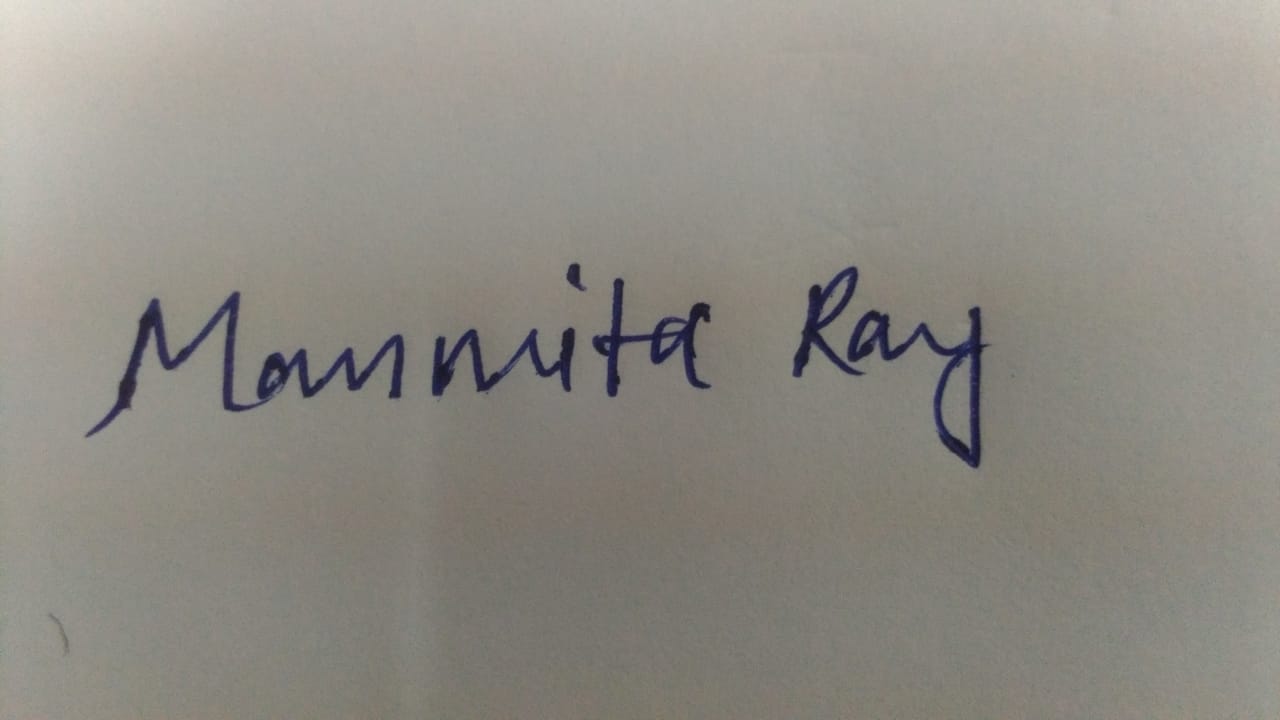 Moumita Ray